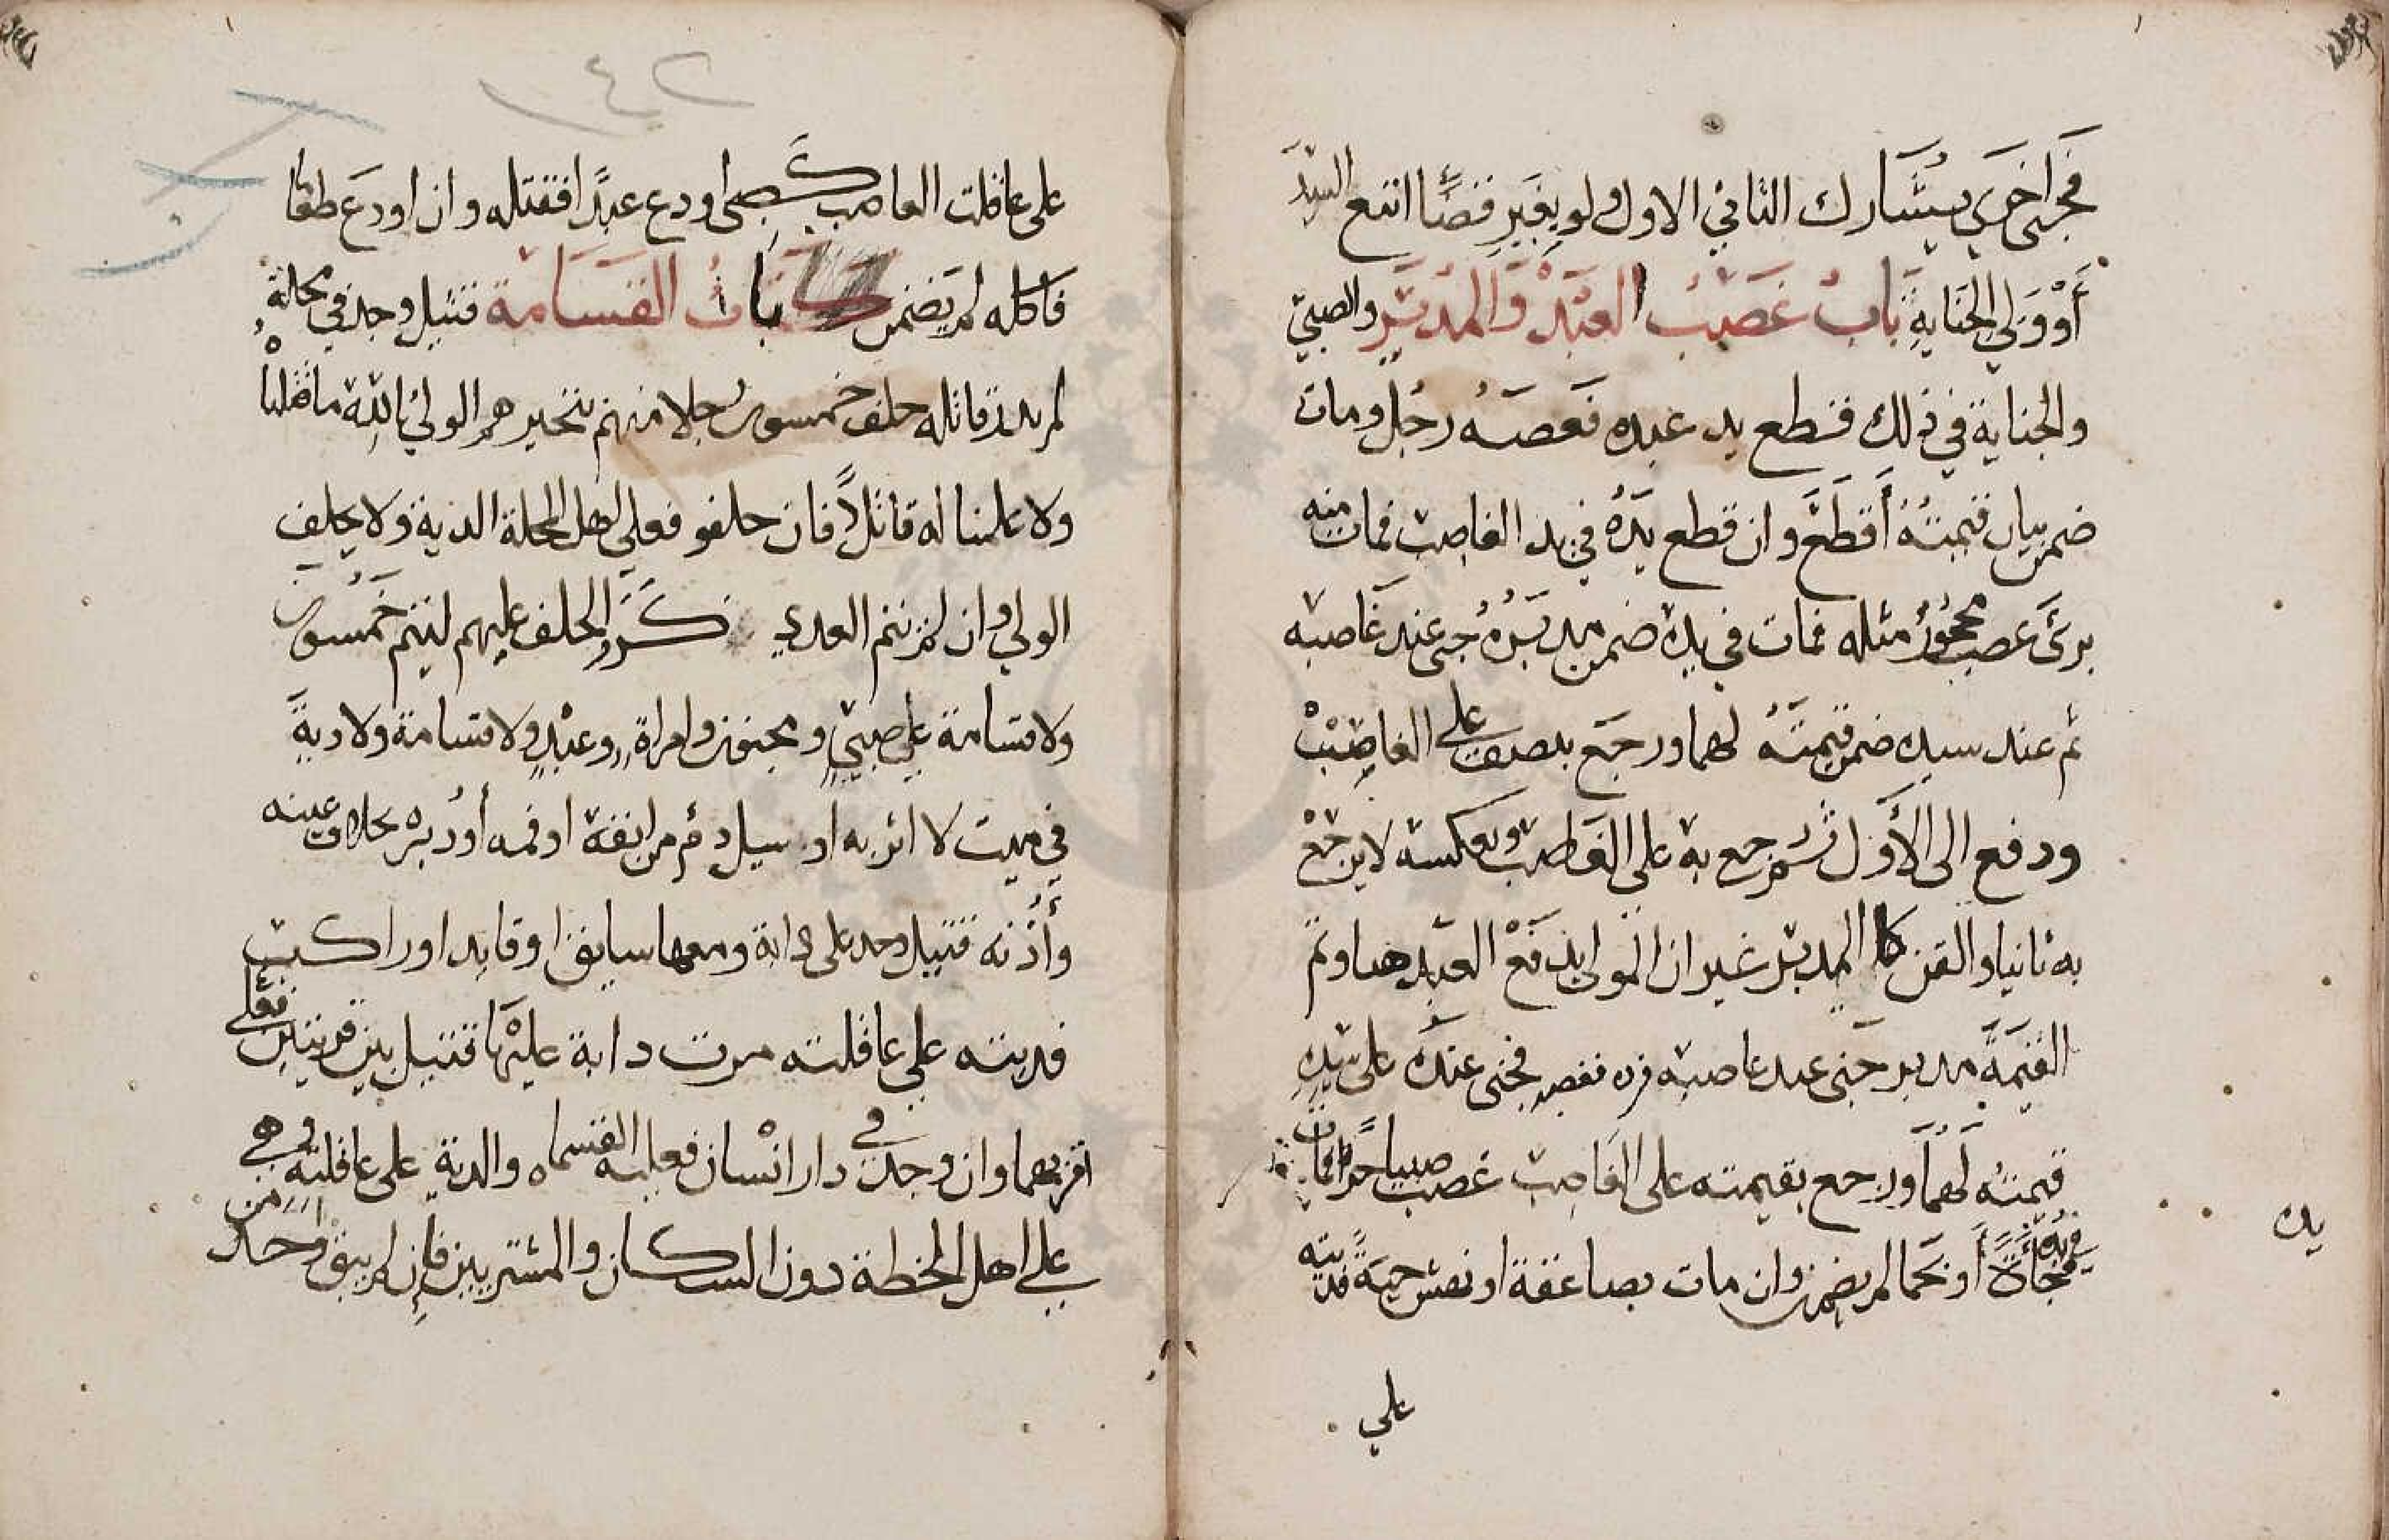 فجنى اخرى يشارك الثاني الاول ولو بغير قضاء اتبع السيد
أو ولي الجناية باب غصب العبد والمدبر والصبي
والجناية في ذلك قطع يد عبده فغصبه رجل ومات
ضمن قيمته أقطع وان قطع يده في يد الغاصب فمات منه
برئ غصب محجور مثله فمات في يده ضمن مدبره جنى عند غاصبه
ثم عند سيده ضمن قيمته لهما ورجع بنصف على الغاصب
ودفع الى الأول ثم رجع به على الغاصب وبعكسه لا يرجع
به ثانيا والقن كا المدبر غير ان المولى يدفع العبد هنا وثم
القيمة مدبر جنى عند غاصبه فرده فغصبه فجنى عنده على سيده
قيمته لهما ورجع بقيمته على الغاصب غصب صبيا حرا فمات
في يده
فجاءة أو بحما لم يضمن وان مات بصاعقة او نهش حية فديته
يده
على
١٤٢
على عاقلت الغاصب كصبي اودع عبدا فقتله وان اودع طعاما
فاكله لم يضمن كتاب باب القسامة قتيل وجد في محلة
لم يدر قاتله حلف خمسون رجلا منهم يتخيرهم الولي بالله ما قتلناه
ولا علمنا له قاتلا فان حلفو فعلى اهل المحلة الدية ولا يحلف
الولي وان لم يتم العدد كرر الحلف عليهم ليتم خمسون
ولا قسامة على صبي ومجنون وامراة وعبد ولا قسامة ولا دية
في ميت لا اثر به او سيل دم من انفه او فمه أو دبره بخلاف عينه
وأذنه قتيل وجد على دابة ومعها سايق او قايد او راكب
فديته على عاقلته مرت دابة عليها قتيل بين قريتين فعلى
اقربهما وان وجد في دار انسان فعليه القسامه والدية على عاقلته وهي
على اهل الخطة دون السكان والمشتريين فإن لم يبق واحد من